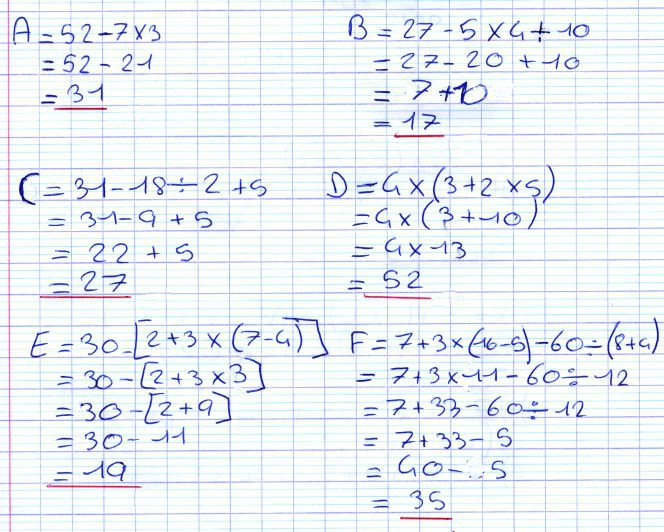 A = 52 - 7 × 3
= 52 - 21
= 31
B = 27 - 5 × 4 + 10
= 27 - 20 + 10
= 7 + 10
= 17
C = 31 - 18 ÷ 2 + 5
= 31 - 9 + 5
= 22 + 5
= 27
D = 4 × (3 + 2 × 5)
= 4 × (3 + 10)
= 4 × 13
= 52
E = 30 - [2 + 3 × (7 - 4)]
= 30 - [2 + 3 × 3]
= 30 - [2 + 9]
= 30 - 11
= 19
F = 7 + 3 × (16 - 5) - 60 ÷ (8 + 4)
= 7 + 3 × 11 - 60 ÷ 12
= 7 + 33 - 60 ÷ 12
= 7 + 33 - 5
= 40 - 5
= 35